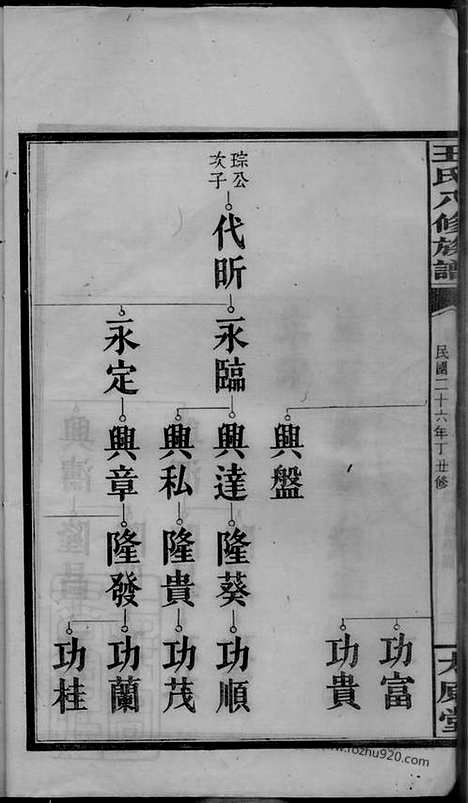 王氏八修族譜
民國二十六年丁丑修
琮公
次子
代昕
永臨
永定
興盤
興達
興私
興章
隆葵
隆貴
隆發
功富
功貴
功順
功茂
功蘭
功桂
www.rozhu920.com